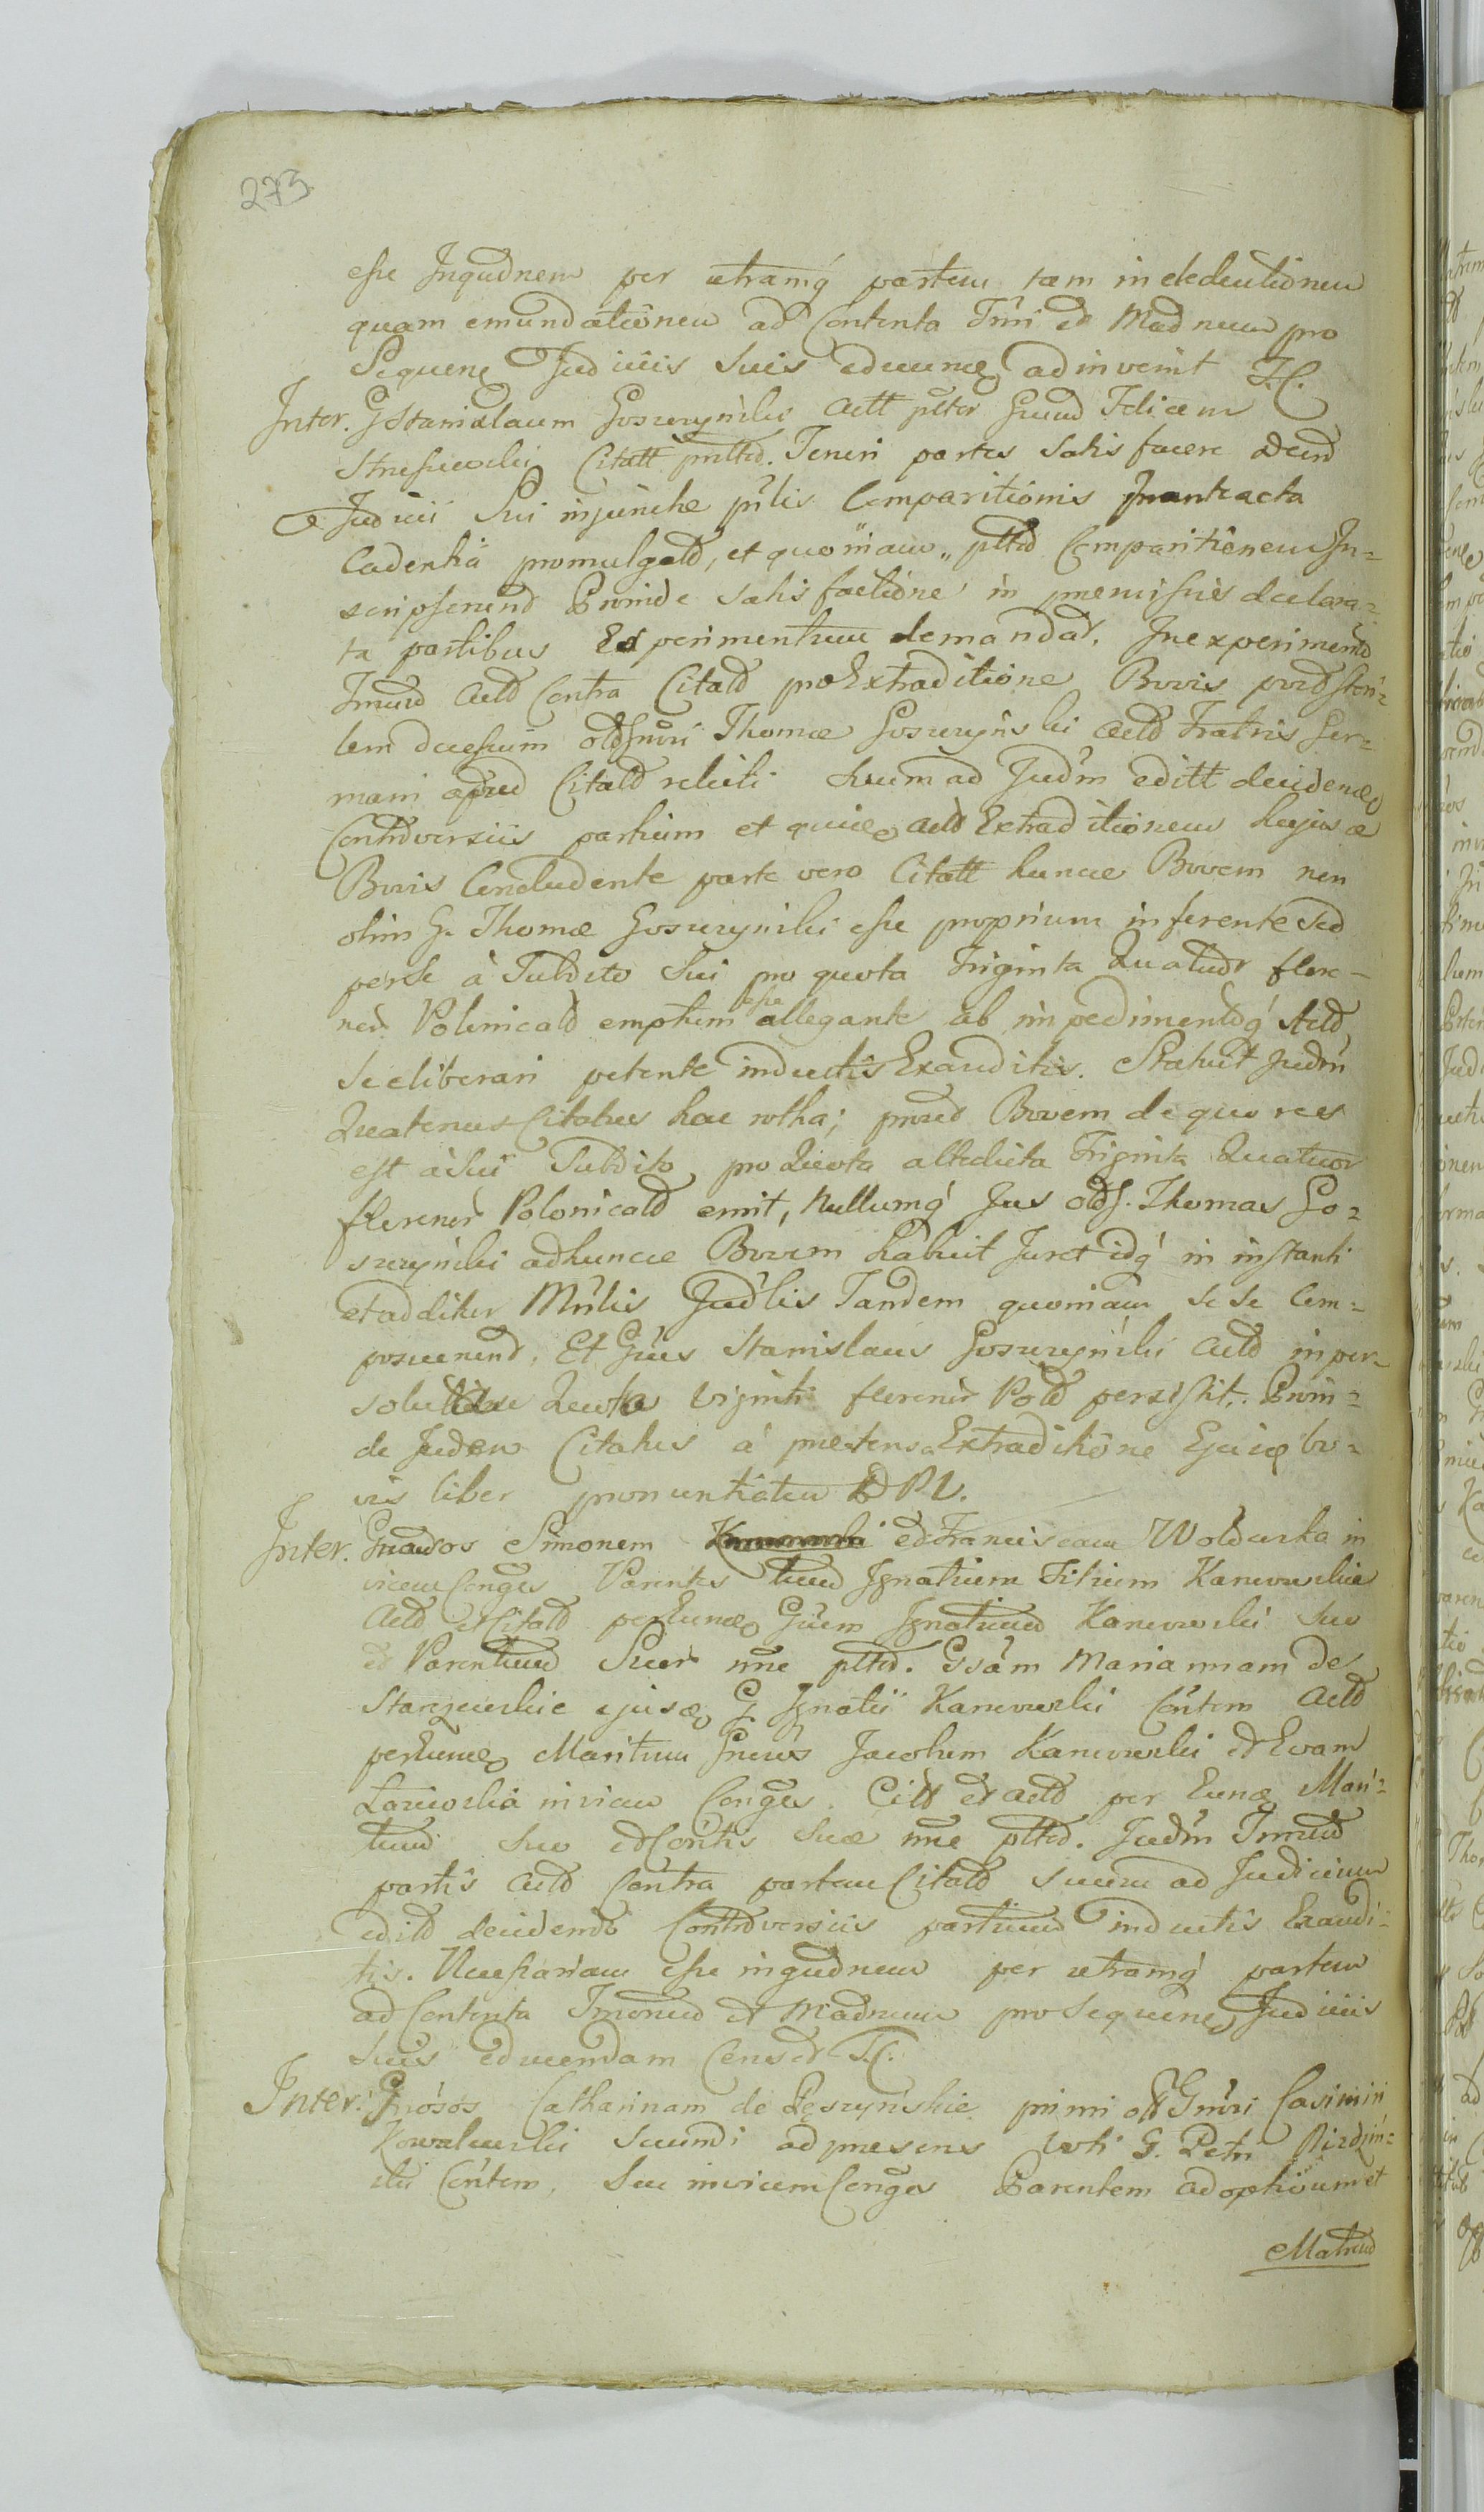 273
esse Inqudnem per utramq́ partem tam in deductiõnem
quam emundatiõnem ad Contenta Tmĩ et Madnum pro
Sequenẽ Judiciis Suis educẽnẽ adinvenit T.C.
Inter. G Stanislaum Goszczynski Actt Felicem
Citatt pnlttd. Teneri partes satisfacere Decrd
Judicii Sui injunctae pnlis Comparitionis In antacta
Cadentia promulgatd, et quoniam „ plttd Comparitiõnem In-
scripserund Proinde satisfactiõne in praemissis declara-
ta partibus Experimentum demandat. In experimento
Actd Contra Citatd pro Extraditione Bovis
Thomae Goszczynski Actd Fratris Ger-
mani apud Citatd relicti suum ad Judm editt decidendẽ
Controversiis partium et quidẽ Actd Extraditionem hujus ce
Bovis Concludente parte vero Citatt huncce Bovem non
olim G. Thomae Goszczynski esse proprium inferente sed
per se à Subdito Sui pro quota Triginta Quatuor flore-
nor. Polonicald emptum esse allegante ab impedimentoq́ Actd
se liberari petente inductis Exauditis. Statuit Judm
Quatenus Citatus hac rotha; Bovem de quo res
est à Sui Subdito pro Quota altedicta Triginta Quatuor
florenor Polonicald emit, Nullumq́ Jus old G. Thomas Go-
szczynski ad huncce Bovem habuit Juret idq́ in instanti
et additur Mnlis Judlis Tandem quoniam se se Com-
posuerund. Et Gnus Stanislaus Goszczynski Actd in per-
solutiõne Quota viginti florenor Pold persistit. Proin-
de Judm Citatus à praetensa Extraditiõne Ejusce bo-
vis liber pronuntiatur
Inter. Gnrosos Simonem et Franciscam Woldurka in
vicem Conges Parentes tum Ignatium Filium Kanuwskie
Actd et Citatd per Eunce Gnem Ignatium Kanuwski suo
et Parentum Suor nne plttd. Gsam Mariannam de
ejusce G. Ignatii Kanuwski Contem Actd
per Eunce Maritum Gnrosos Jacobum Kanuwski et Evam
invicem Conges. Citt et actd per Eunce Mari-
tum suo et Contis suae nne plttd. Judm Tmnum
partis Actd Contra partem Citatd suum ad Judicium
editd decidendo Controversiis partium inductis Exaudi-
tis. Necessariam esse inqudnem per utramq́ partem
ad Contenta Tmonum et Madnum pro Sequenẽ Judiciis
Suis educendam Censet T.C.
Inter. Gnrosos Catharinam de Pęszyńskie primi old Gnrsi Casimiri
Kowalewski secundi ad praesens voti G. Petri
ski Contem, suc invicem Conges Parentem adoptivum et
Matrem